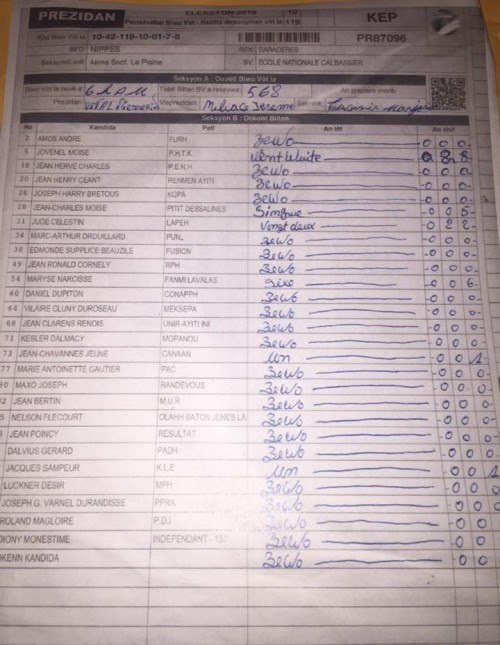 PREZIDAN ELEKSYON 2016 10 119 KEP
Kòd Biwo Vòt la 10-42-119-10-01-7-8 PR87096
BED: NIPPES BEK: BARADERES
4ème Sect. La Plaine SV: ECOLE NATIONALE CALBASSIER
Seksyon A : Ouvèti Biwo Vòt la
Biwo Vòt la ouvè a: 6h AM Total Bilten BV a resevwa: 568 An prezans manm:
Prezidan: Visprezidan: Jerome
Seksyon B : Dekont Bilten
No Kandida Pati An lèt An chif
2 AMOS ANDRE FURH Zewo 0 0 0
5 JOVENEL MOISE P.H.T.K. Vent Wuite 0 2 8
18 JEAN HERVE CHARLES P.E.N.H Zewo 0 0 0
20 JEAN HENRY CEANT RENMEN AYITI Zewo 0 0 0
26 JOSEPH HARRY BRETOUS KOPA Zewo 0 0 0
28 JEAN-CHARLES MOISE PITIT DESSALINES 0 0 5
31 JUDE CELESTIN LAPEH Vingt deux 0 2 2
34 MARC-ARTHUR DROUILLARD PUN. Zewo 0 0 0
38 EDMONDE SUPPLICE BEAUZILE FUSION Zewo 0 0 0
49 JEAN RONALD CORNELY RPH Zewo 0 0 0
54 MARYSE NARCISSE FANMI LAVALAS 0 0 6
60 DANIEL DUPITON CONAPPH Zewo 0 0 0
64 VILAIRE CLUNY DUROSEAU MEKSEPA Zewo 0 0 0
68 JEAN CLARENS RENOIS UNIR-AYITI INI Zewo 0 0 0
71 KESLER DALMACY MOPANOU Zewo 0 0 0
73 JEAN-CHAVANNES JEUNE CANAAN un 0 0 1
77 MARIE ANTOINETTE GAUTIER PAC Zewo 0 0 0
80 MAXO JOSEPH RANDEVOUS Zewo 0 0 0
82 JEAN BERTIN M.U.R. Zewo 0 0 0
5 NELSON FLECOURT OLAHH BATON JENES LA Zewo 0 0 0
JEAN POINCY RESULTAT Zewo 0 0 0
DALVIUS GERARD PADH Zewo 0 0 0
JACQUES SAMPEUR K.L.E un 0 0 1
LUCKNER DESIR MPH Zewo 0 0 0
JOSEPH G. VARNEL DURANDISSE PPRA Zewo 0 0 0
ROLAND MAGLOIRE P.D.I Zewo 0 0
DIONY MONESTIME INDEPENDANT - 137 Zewo 0 0
OKENN KANDIDA Zewo 0 0